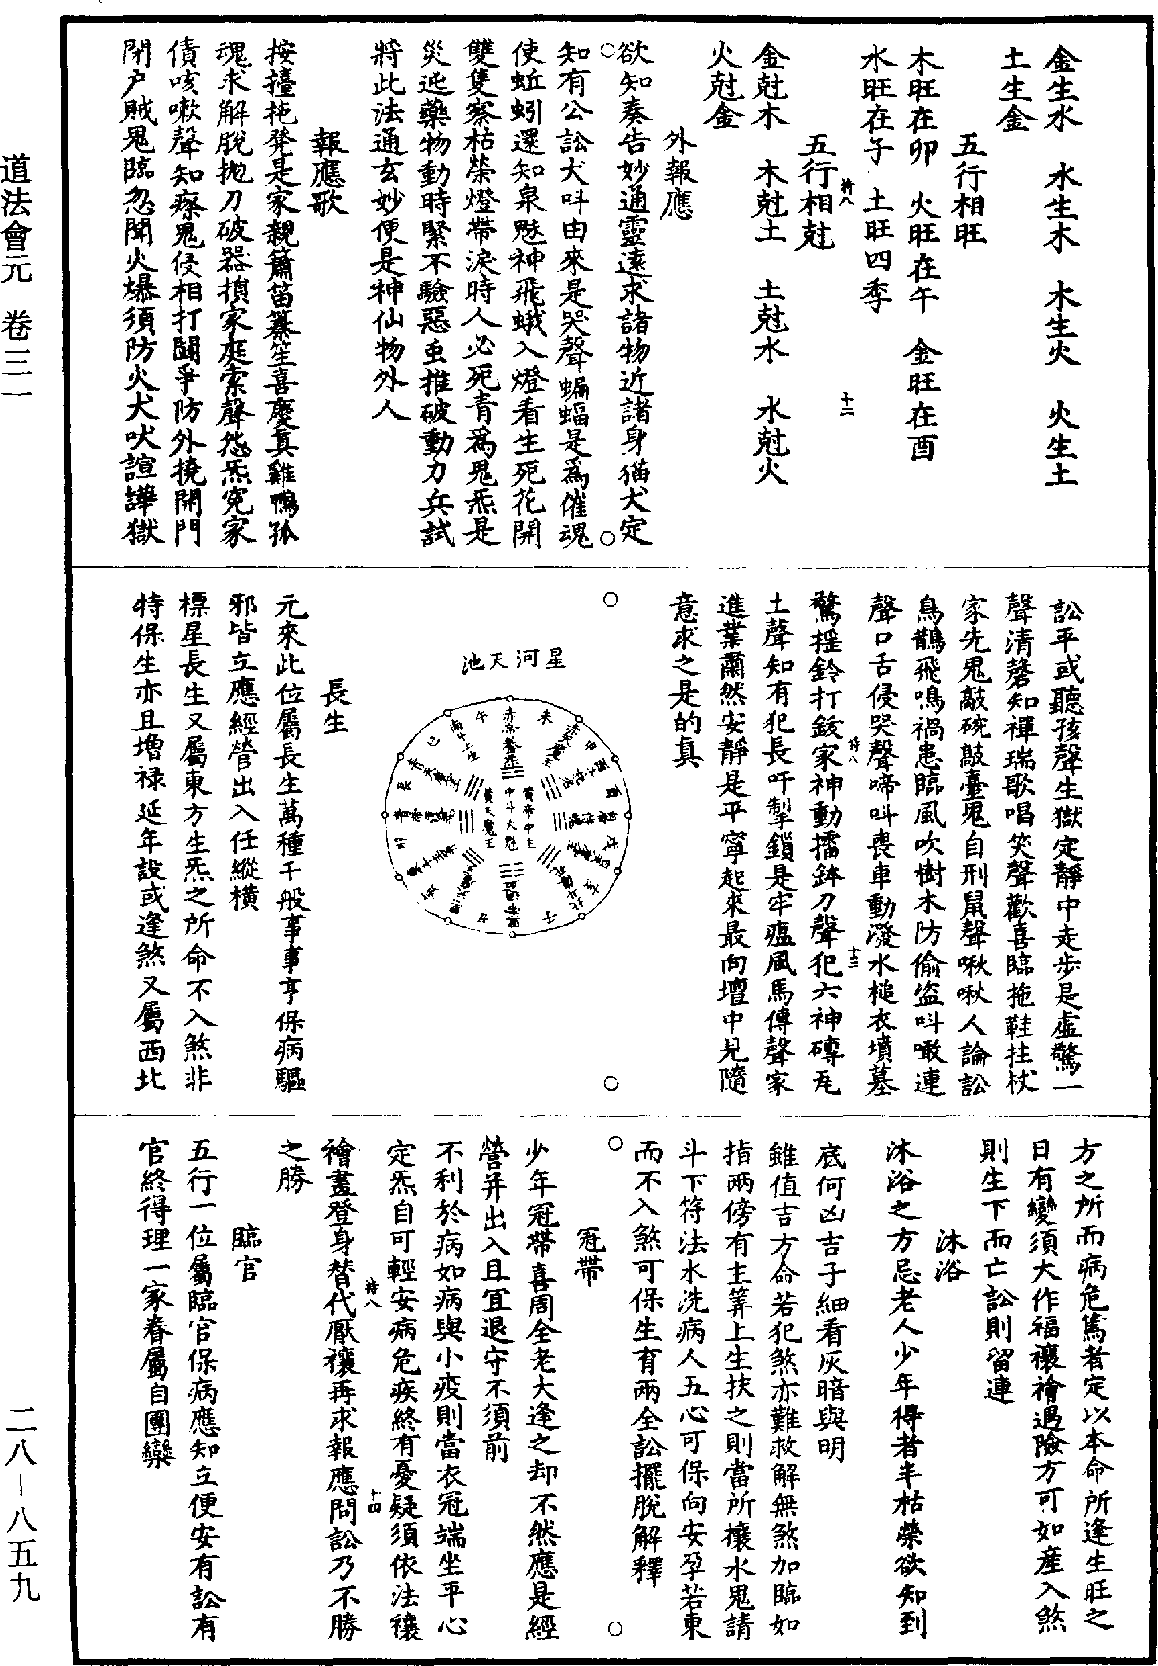 金生水　水生木　木生火　火生土
土生金
五行相旺
木旺在卯　火旺在午　金旺在酉
水旺在子　土旺四季
五行相尅
金尅木　木尅土　土尅水　水尅火
火尅金
外報應
欲知奏告妙通靈遠求諸物近諸身猫犬定
知有公訟犬呌由來是哭聲蝙蝠是爲催魂
使蚯蚓還知泉魅神飛蛾入燈看生死花開
雙隻察枯榮燈帶淚時人必死青爲鬼炁是
災迍藥物動時緊不驗惡虫推破動力兵試
將此法通玄妙便是神仙物外人
報應歌
按擡拖凳是家親簫笛纂笙喜慶真雞鴨孤
魂求解脫抛刀破器損家庭索聲怨炁寃家
債咳嗽聲知瘵鬼侵相打鬭爭防外撓開門
閉户賊鬼臨忽聞火爆須防火犬吠諠譁獄
訟平或聽孩聲生獄定靜中走步是虛驚一
聲清磬知禪瑞歌唱笑聲歡喜臨拖鞋拄杖
家先鬼敲碗敲臺鬼自刑鼠聲啾啾人論訟
鳥鵲飛鳴禍患臨風吹樹木防偷盜呌噉連
聲口舌侵哭聲啼呌喪車動潑水槌衣墳墓
驚摇鈴打鈸家神動擂鉢刀聲犯六神磚瓦
土聲知有犯長吁掣鎖是牢瘟風馬傳聲家
進業肅然安靜是平寧起來最向壇中見隨
意求之是的真
星河天池
長生
元來此位屬長生萬種千般事事亨保病驅
邪皆立應經營出入任縱横
標星長生又屬東方生炁之所命不入煞非
特保生亦且增禄延年設或逢煞又屬西北
方之所而病危篤者定以本命所逢生旺之
日有變須大作福禳禬過險方可如産入煞
則生下而亡訟則留連
沐浴
沐浴之方忌老人少年得者半枯榮欲知到
底何凶吉子細看灰暗與明
雖值吉方命若犯煞亦難救解無煞加臨如
指兩傍有主筭上生扶之則當所攘水鬼請
斗下符法水洗病人五心可保向安孕若東
而不入煞可保生有兩全訟擺脫解釋
冠帶
少年冠帶喜周全老大逢之却不然應是經
營并出入且宜退守不須前
不利於病如病與小疫則當衣冠端坐平心
定炁自可輕安病危疾終有憂疑須依法禳
禬晝登身替代厭禳再求報應問訟乃不勝
之勝
臨官
五行一位屬臨官保病應知立便安有訟有
官終得理一家眷屬自團欒
道法會元　卷三一
二八—八五九